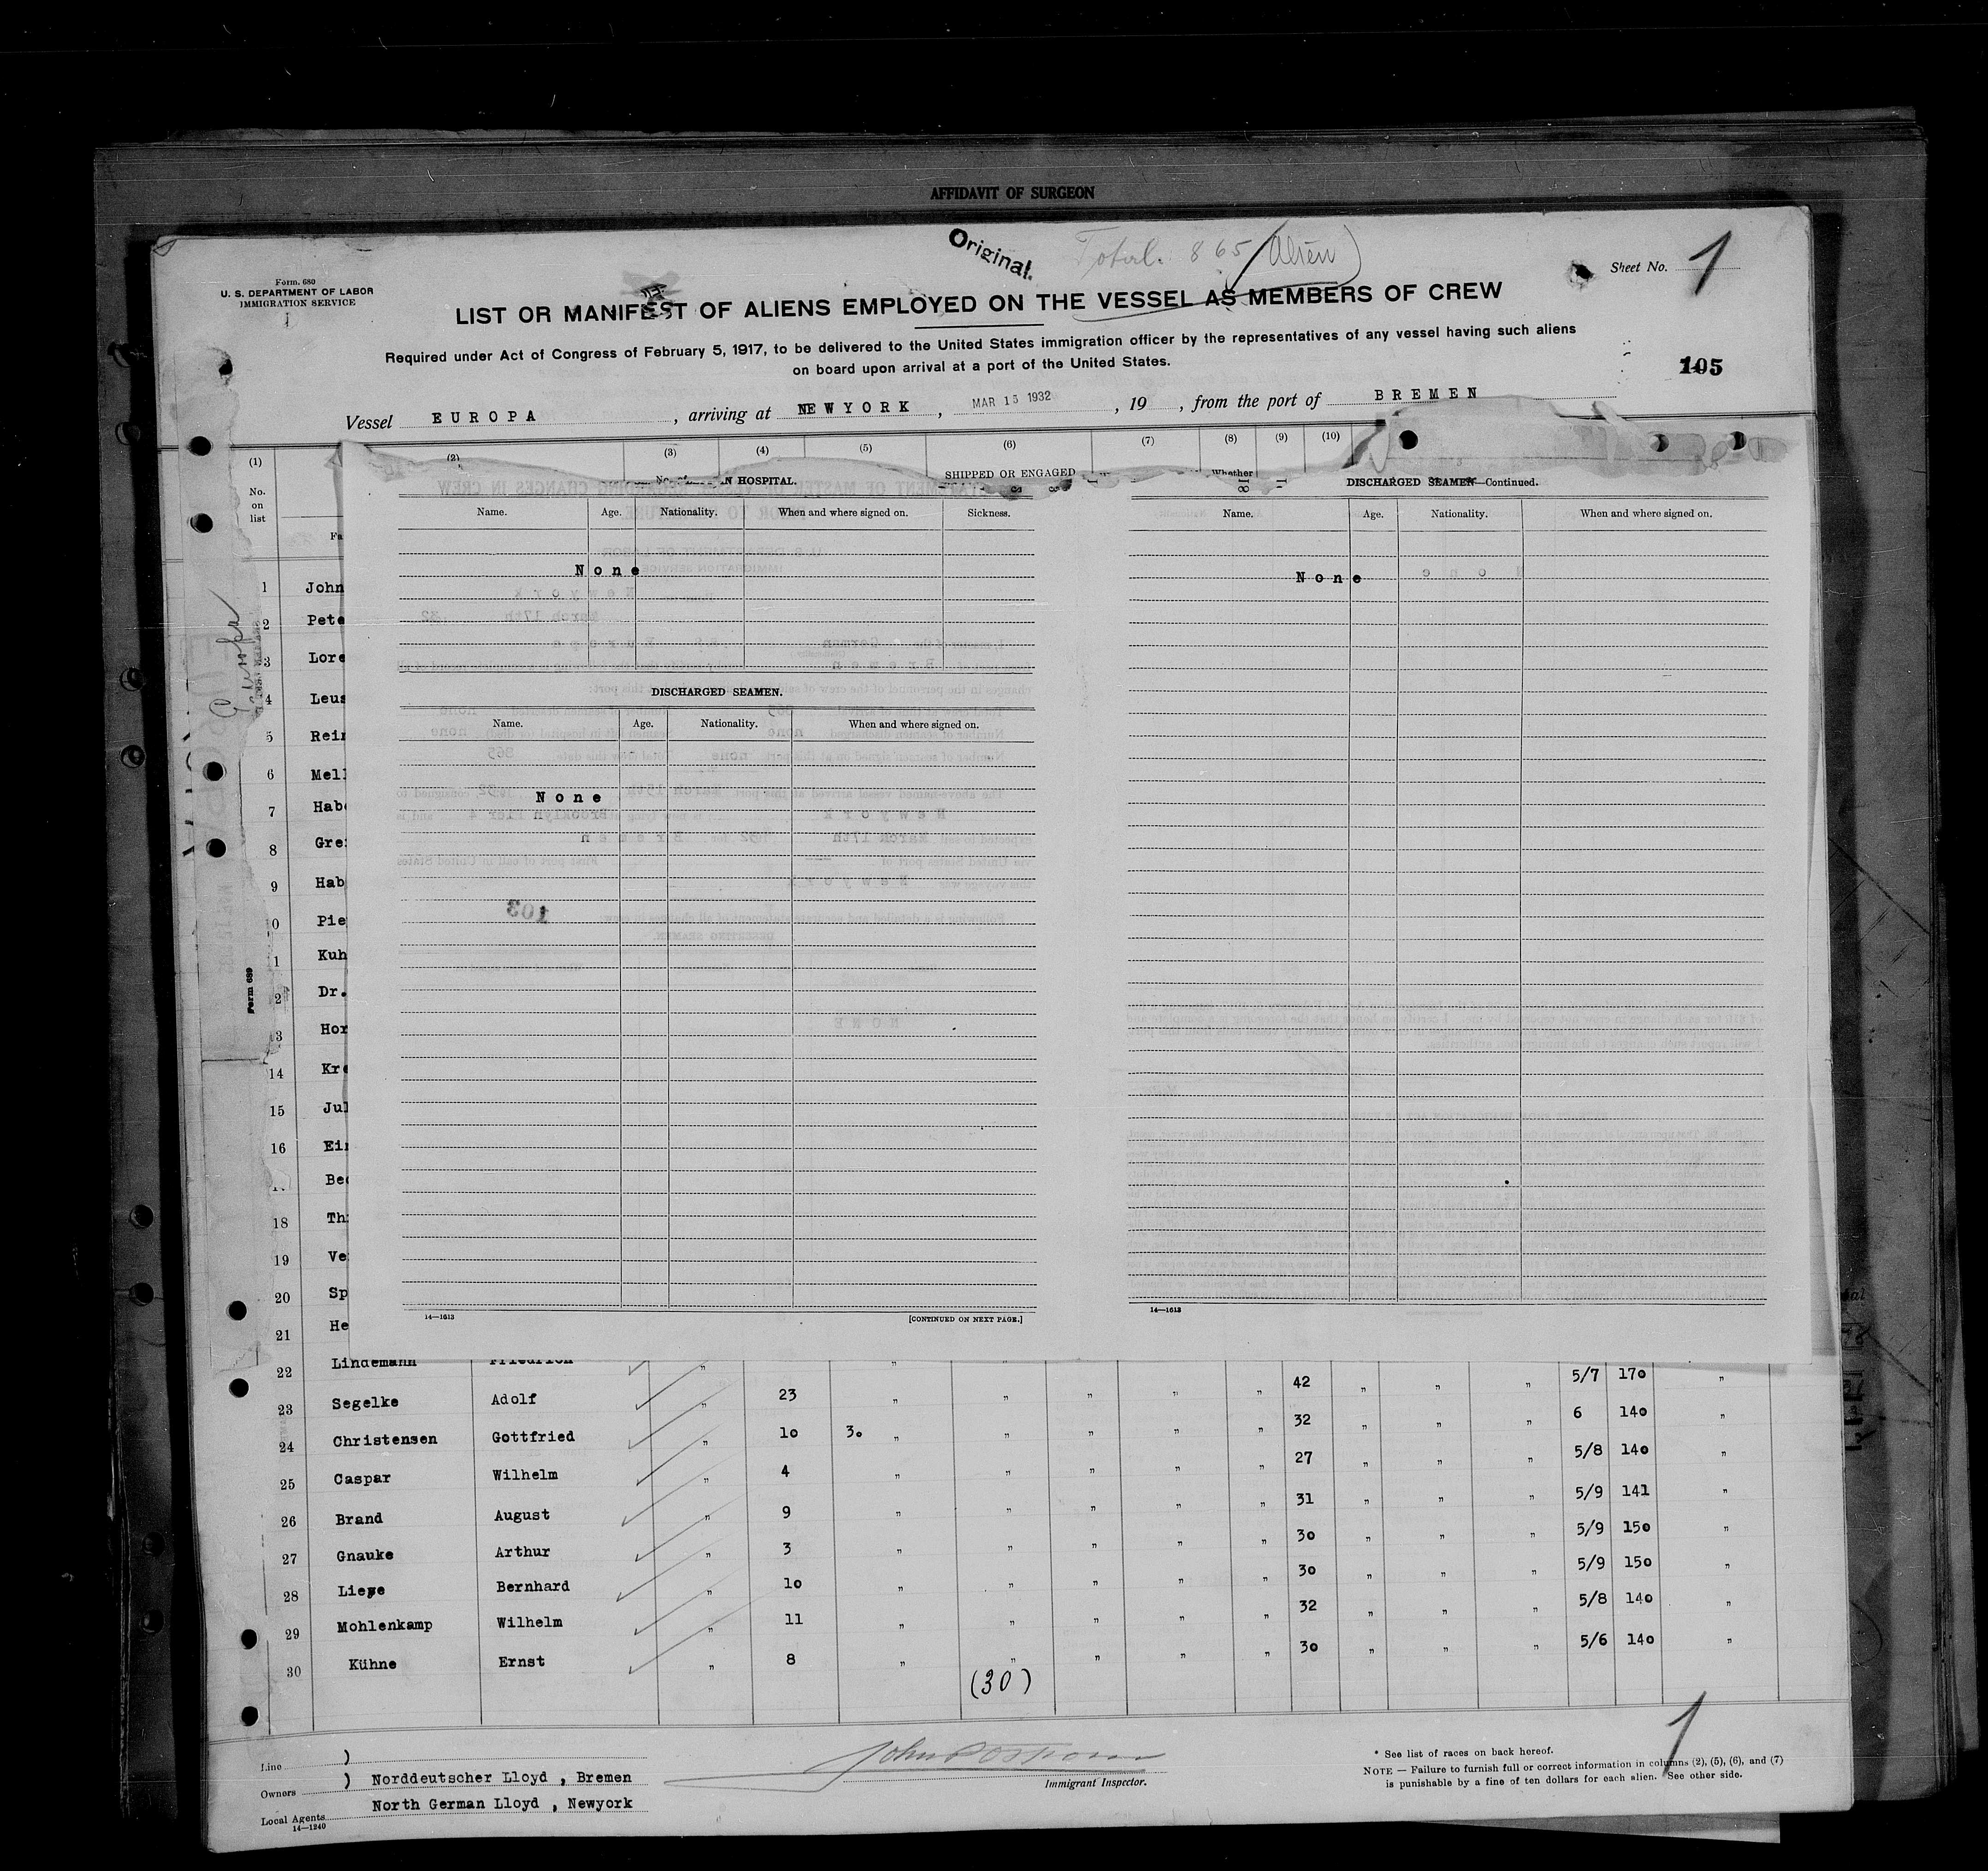 AFFIDAVIT OF SURGEON
Original.
Total. 865 (Alien)
Form. 680
U. S. DEPARTMENT OF LABOR
IMMIGRATION SERVICE
Sheet No. 1
LIST OR MANIFEST OF ALIENS EMPLOYED ON THE VESSEL AS MEMBERS OF CREW
Required under Act of Congress of February 5, 1917, to be delivered to the United States immigration officer by the representatives of any vessel having such aliens
on board upon arrival at a port of the United States.
105
Vessel EUROPA, arriving at NEWYORK, MAR 15 1932, 19, from the port of BREMEN
(1) (2) (3) (4) (5) (6) (7) (8) (9) (10)
No. on list
SHIPPED OR ENGAGED
Whether
IN HOSPITAL.
Name. Age. Nationality. When and where signed on. Sickness.
None
DISCHARGED SEAMEN.
Name. Age. Nationality. When and where signed on.
None
103
14—1613
[CONTINUED ON NEXT PAGE.]
DISCHARGED SEAMEN—Continued.
Name. Age. Nationality. When and where signed on.
None
14—1613
Europa
Form 689
1 John
2 Pete
3 Lore
4 Leus
5 Rein
6 Mell
7 Habe
8 Gre
9 Hab
0 Pie
1 Kuh
2 Dr.
3 Hor
14 Kre
15 Jul
16 Ein
Bec
18 Th
19 Ve
20 Sp
21 He
22 Lindemann Friedrich " " " 5/7 170 "
23 Segelke Adolf " 23 " " " " " 42 " " " 6 140 "
24 Christensen Gottfried " 10 30 " " " " " 32 " " " 5/8 140 "
25 Caspar Wilhelm " 4 " " " " " 27 " " " 5/9 141 "
26 Brand August " 9 " " " " " 31 " " " 5/9 150 "
27 Gnauke Arthur " 3 " " " " " 30 " " " 5/9 150 "
28 Liese Bernhard " 10 " " " " " 30 " " " 5/8 140 "
29 Mohlenkamp Wilhelm " 11 " " " " " 32 " " " 5/6 140 "
30 Kühne Ernst " 8 " " " " " 30 " " "
(30)
Line )
Owners ) Norddeutscher Lloyd , Bremen
Local Agents North German Lloyd , Newyork
14—1240
Immigrant Inspector.
1
* See list of races on back hereof.
NOTE — Failure to furnish full or correct information in columns (2), (5), (6), and (7)
is punishable by a fine of ten dollars for each alien. See other side.